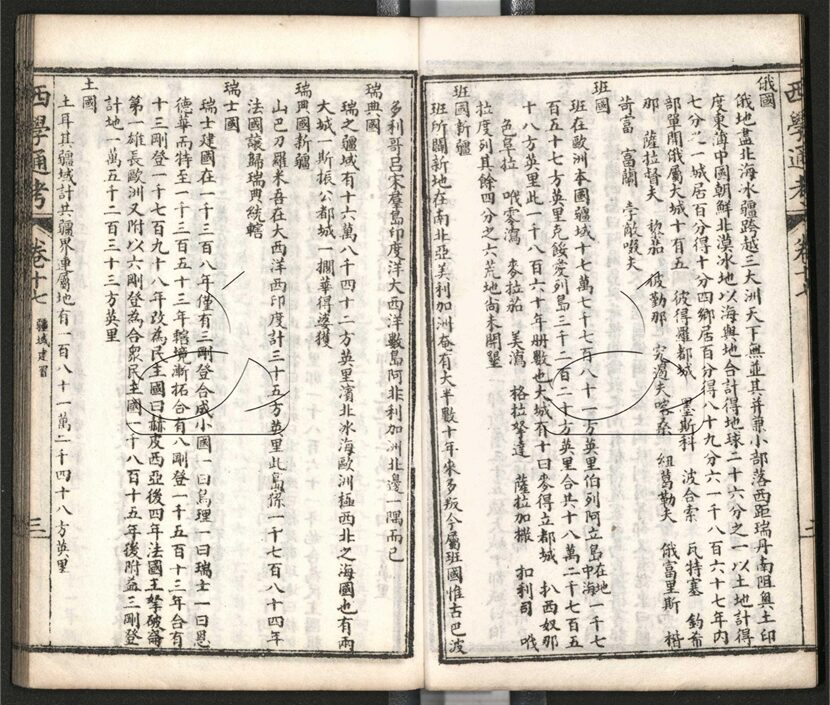 西學通考 卷十七
俄國
俄地盡北海冰疆跨越三大洲天下無並其并兼小部落西距瑞丹南阻奧土印
度東薄中國朝鮮北漠冰地以海與地合計得地球二十六分之一以土地計得
七分之一城居百分得十分四鄉居百分得八十九分六一千八百六十七年內
部單閒俄屬大城十百五 彼得羅都城 墨斯科 波合索 瓦特塞 鈞希
那 薩拉督夫 軟茄 彼勒那 夫喀桑 紐葛勒夫 俄富里斯 楷
苛富 富蘭 孛敵啜夫
班國
班在歐洲本國疆域十七萬七千七百八十一方英里伯列阿立島在地中海一千七
百五十七方英里克餒愛列島三千二百二十方英里合共十八萬二千七百五
十八方英里此一千八百六十年册數也大城有十曰麥得立都城 扒西奴那
色草拉 哦零瀉 麥拉茄 美瀉 格拉孥達 薩拉加撒 扣利司 哦
拉度列其餘四分之六荒地尚未開墾
班國新疆
班所闢新地在南北亞美利加洲奄有大半數十年來多叛今屬班國惟古巴波
多利哥呂宋羣島印度洋大西洋數島阿非利加洲北邊一隅而已
瑞典國
瑞之疆域有十六萬八千四十二方英里濱北冰海歐洲極西北之海國也有兩
大城一斯振公都城一擱華得婆獲
瑞典國新疆
山巴刀羅米吾在大西洋西印度計三十五方英里此島係一千七百八十四年
法國讓歸瑞典統轄
瑞士國
瑞士建國在一千三百八年僅有三剛登合成小國一曰烏理一曰瑞士一曰恩
德華而特至一千三百五十三年轄境漸拓合有八剛登一千五百十三年合有
十三剛登一千七百九十八年改為民主國曰赫皮西亞後四年法國王拏破崙
第一雄長歐洲又附以六剛登為合衆民主國一千八百十五年後附益三剛登
計地一萬五千二百三十三方英里
土國
土耳其疆域計其疆界連屬地有一百八十一萬二千四十八方英里
西學通考 卷十七 疆域建置 三